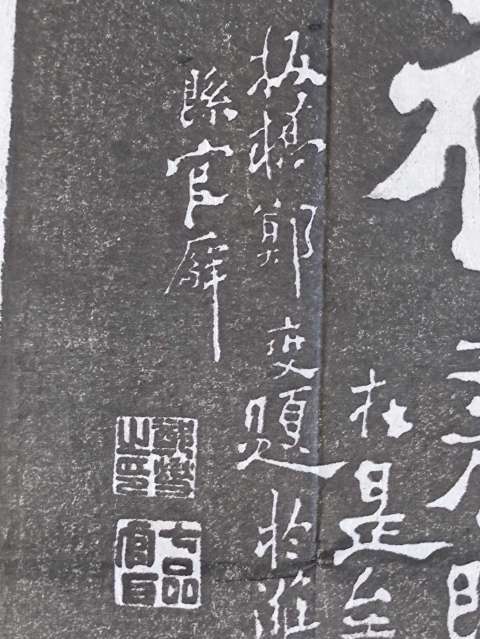 在是
板橋鄭燮題於濰
縣官廨
鄭燮
之印
七品
官耳